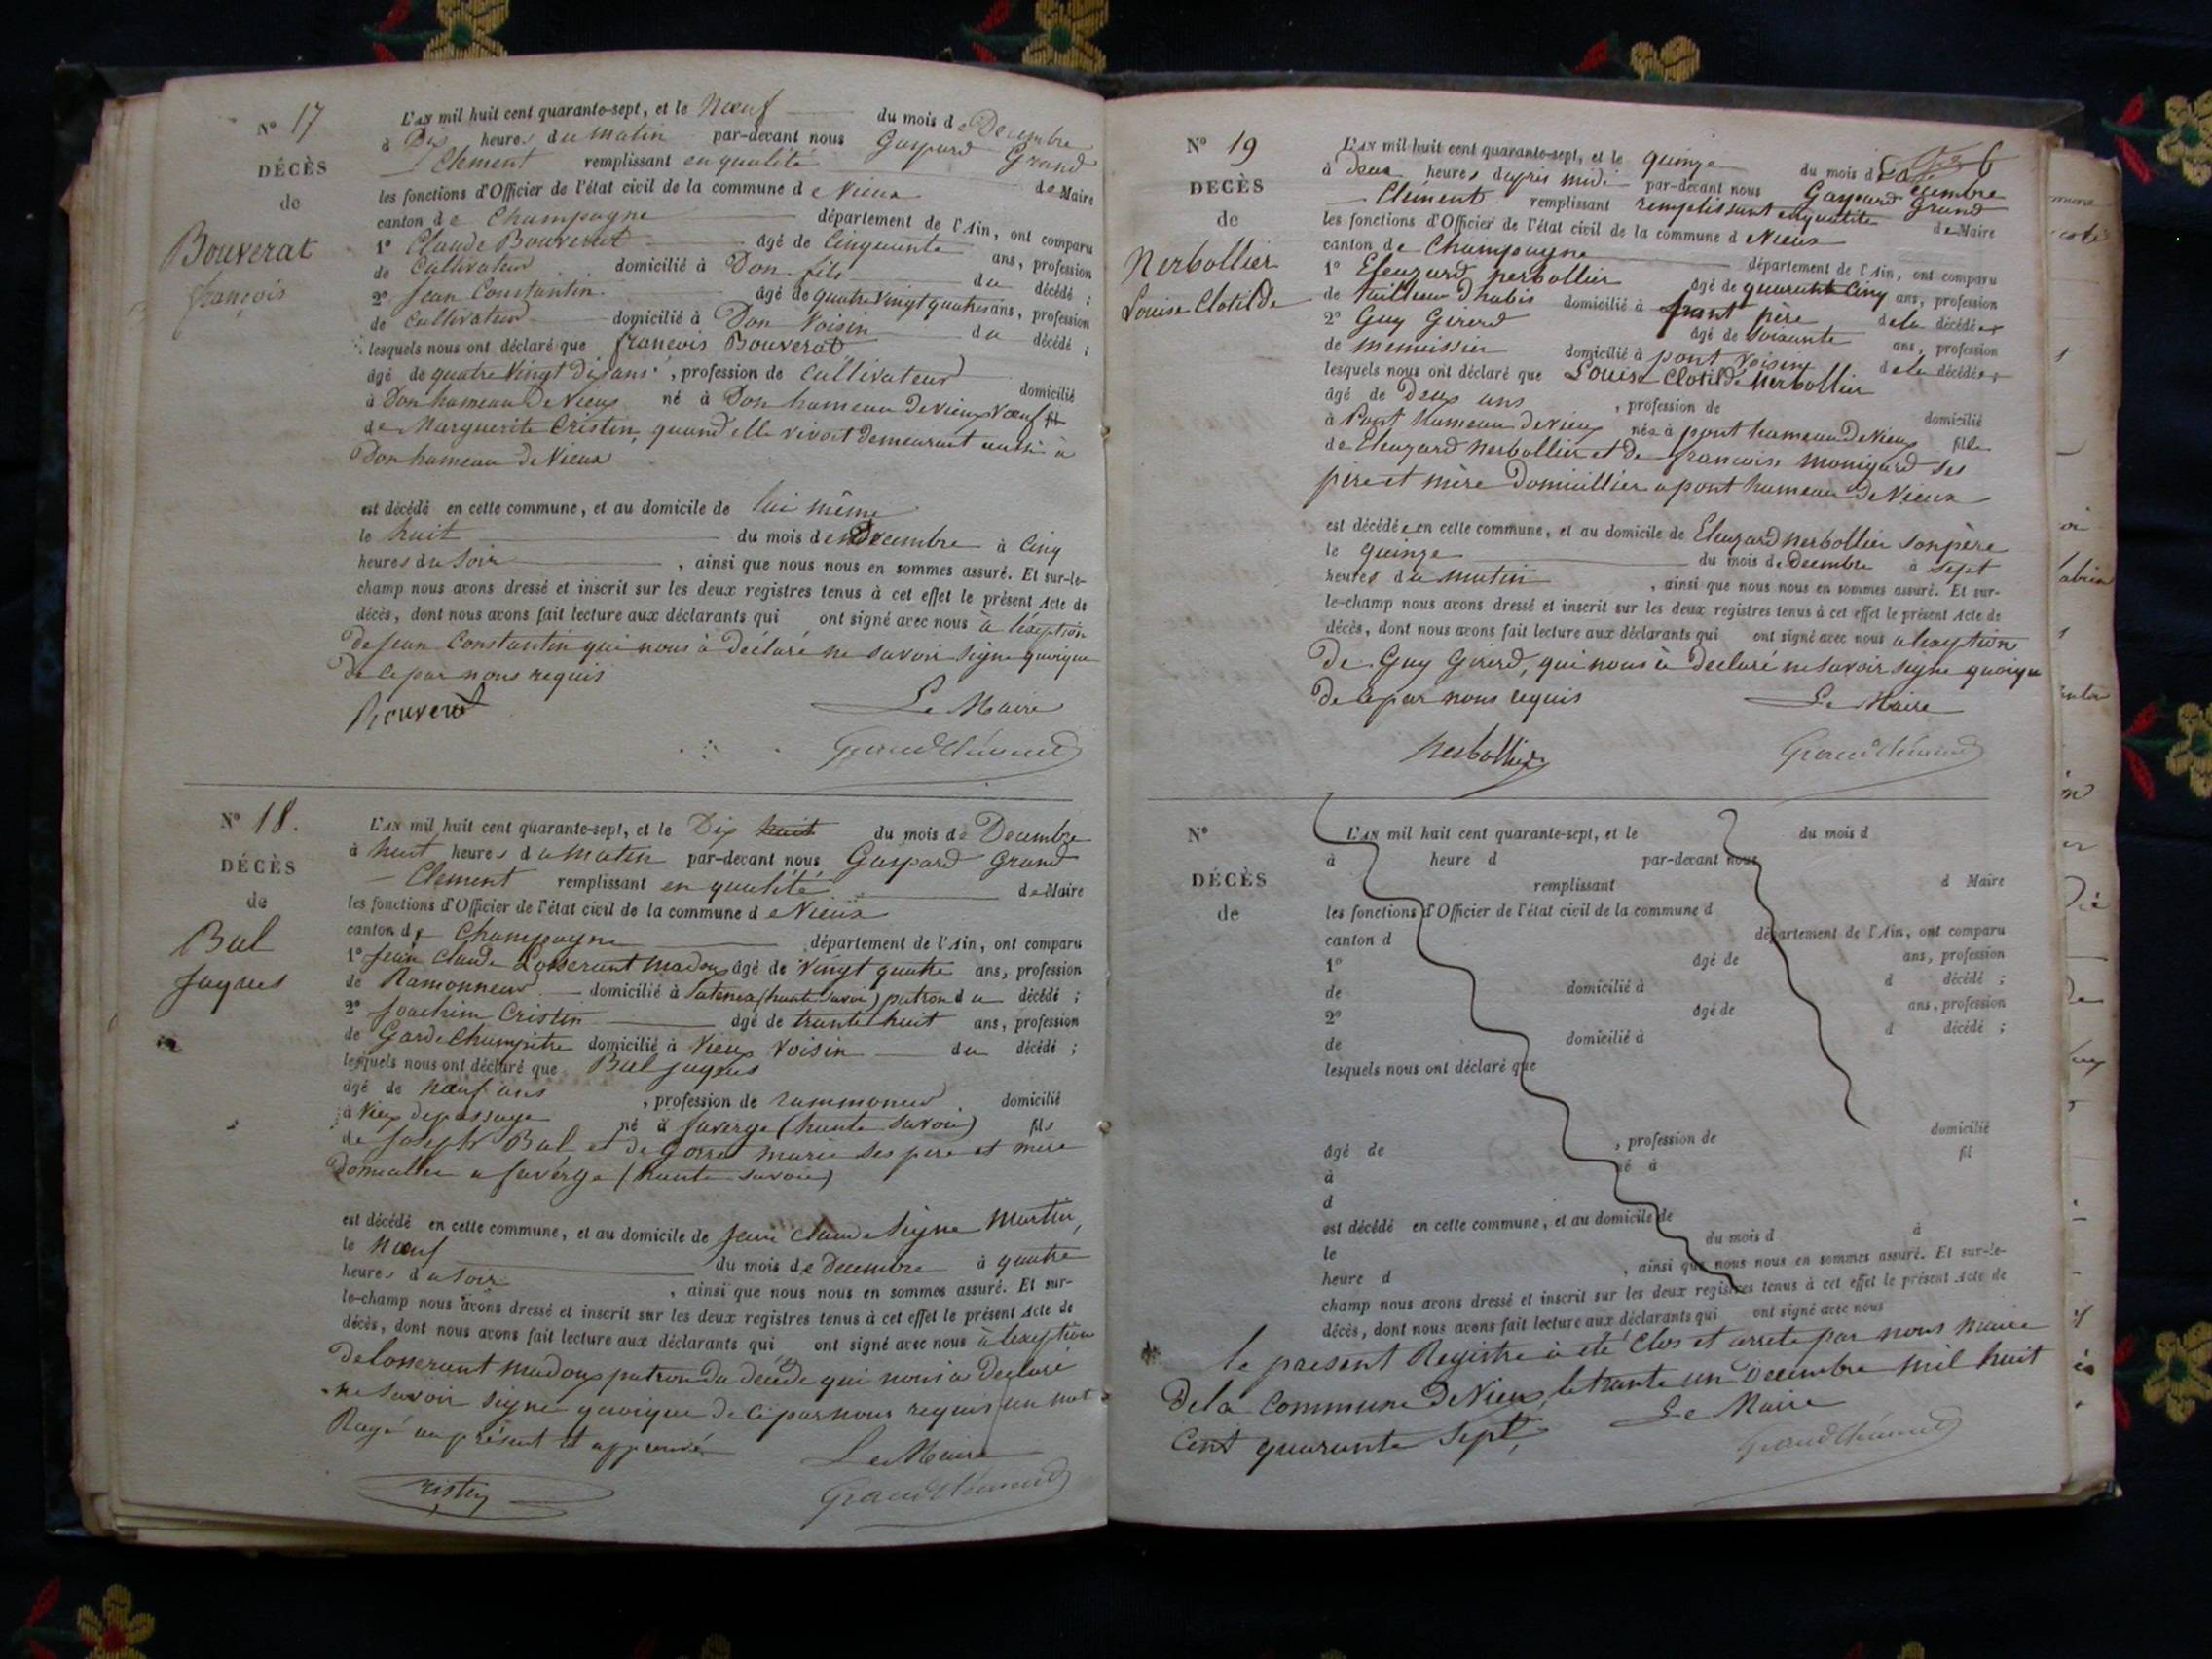 N° 17
DÉCÈS
de
Bouverat
françois
L'AN mil huit cent quarante-sept, et le Nœuf du mois de Decembre
à Dix heures du matin par-devant nous Gaspard Grand
Clement remplissant en qualité de Maire
les fonctions d'Officier de l'état civil de la commune de Vieux
canton de Champagne département de l'Ain, ont comparu
1° Claude Bouverat âgé de Cinquante ans, profession
de Cultivateur domicilié à Don fils du décédé ;
2° Jean Constantin âgé de quatre vingt quatre ans, profession
de Cultivateur domicilié à Don Voisin du décédé ;
lesquels nous ont déclaré que francois Bouverat
âgé de quatre Vingt dix ans, profession de Cultivateur domicilié
à Don hameau de Vieux né à Don hameau de vieux Vœuf fil
de Marguerite Cristin, quand elle vivoit demeurant aussi à
Don hameau de Vieux
est décédé en cette commune, et au domicile de lui même
le huit du mois de Decembre à Cinq
heures du Soir, ainsi que nous nous en sommes assuré. Et sur-le-
champ nous avons dressé et inscrit sur les deux registres tenus à cet effet le présent Acte de
décès, dont nous avons fait lecture aux déclarants qui ont signé avec nous à l'exeption
de Jean Constantin qui nous à déclaré ne savoir signe quoique
de ce par nous requis
Bouverat Le Maire
Grand Clément
N° 18.
DÉCÈS
de
Bal
Jaques
L'AN mil huit cent quarante-sept, et le Dix huit du mois de Decembre
à huit heures du Matin par-devant nous Gaspard Grand
Clement remplissant en qualité de Maire
les fonctions d'Officier de l'état civil de la commune de Vieux
canton de Champagne département de l'Ain, ont comparu
1° Jean Claude Losserant madoux âgé de Vingt quatre ans, profession
de Ramonneur domicilié à (haute Savoi) patron du décédé ;
2° Joachim Cristin âgé de trante huit ans, profession
de Garde Champitre domicilié à Vieux Voisin du décédé ;
lesquels nous ont déclaré que Bal Jaques
âgé de nœuf ans, profession de rammoneur domicilié
à Vieux de passage né à faverge (haute Savoie) fils
de Joseph Bal, et de Gorret marie ses pere et mere
domicillier a faverge (haute savoie)
est décédé en cette commune, et au domicile de Jean Claude Signe Martin,
le Nœuf du mois de Decembre à quatre
heures du Soir, ainsi que nous nous en sommes assuré. Et sur-
le-champ nous avons dressé et inscrit sur les deux registres tenus à cet effet le présent Acte de
décès, dont nous avons fait lecture aux déclarants qui ont signé avec nous à lexeption
de losserant madoux patron du décédé qui nous a Declaré
ne savoir signe quoique de ce par nous requis un mot
Rayé au présent et approuvé
Le Maire
Cristin Grand Clément
N° 19
DECÈS
de
Nerbollier
Louise Clotilde
L'AN mil huit cent quarante-sept, et le quinze du mois de Decembre
à deux heures dapres midi par-devant nous Gaspard Grand
Clément remplissant remplissant enqualité de Maire
les fonctions d'Officier de l'état civil de la commune d Vieux
canton de Champagne département de l'Ain, ont comparu
1° Eleuzard Nerbollier âgé de quarante Cinq ans, profession
de tailleur dhabis domicilié à pont père de la décédée
2° Guy Girerd âgé de soixante ans, profession
de menuissier domicilié à pont Voisin de la décédée ;
lesquels nous ont déclaré que Louise Clotilde Nerbollier
âgé de Deux ans, profession de domicilié
à Pont hameau de vieux née à pont hameau de Vieux fille
de Eleuzard Nerbollier et de francoise monigard ses
père et mère Domicillier a pont hameau de Vieux
est décédée en cette commune, et au domicile de Eleuzard Nerbollier son père
le quinze du mois de Decembre à sept
heures du matin, ainsi que nous nous en sommes assuré. Et sur-
le-champ nous avons dressé et inscrit sur les deux registres tenus à cet effet le présent Acte de
décès, dont nous avons fait lecture aux déclarants qui ont signé avec nous a lexeption
de Guy Girerd, qui nous à declaré ne savoir signe quoique
de ce par nous requis
Le Maire
Nerbollier Grand Clément
N°
DÉCÈS
de
L'AN mil huit cent quarante-sept, et le du mois d
à heure d par-devant nous
remplissant d Maire
les fonctions d'Officier de l'état civil de la commune d
canton d département de l'Ain, ont comparu
1° âgé de ans, profession
de domicilié à d décédé ;
2° âgé de ans, profession
de domicilié à d décédé ;
lesquels nous ont déclaré que
âgé de , profession de domicilié
à né à fil
d
est décédé en cette commune, et au domicile de
le du mois d à
heure d , ainsi que nous nous en sommes assuré. Et sur-le-
champ nous avons dressé et inscrit sur les deux registres tenus à cet effet le présent Acte de
décès, dont nous avons fait lecture aux déclarants qui ont signé avec nous
le present Registre a été Clos et arreté par nous maire
de la Commune de Vieux, le trante un Decembre mil huit
Cent quarante Sept,
Le Maire
Grand Clément